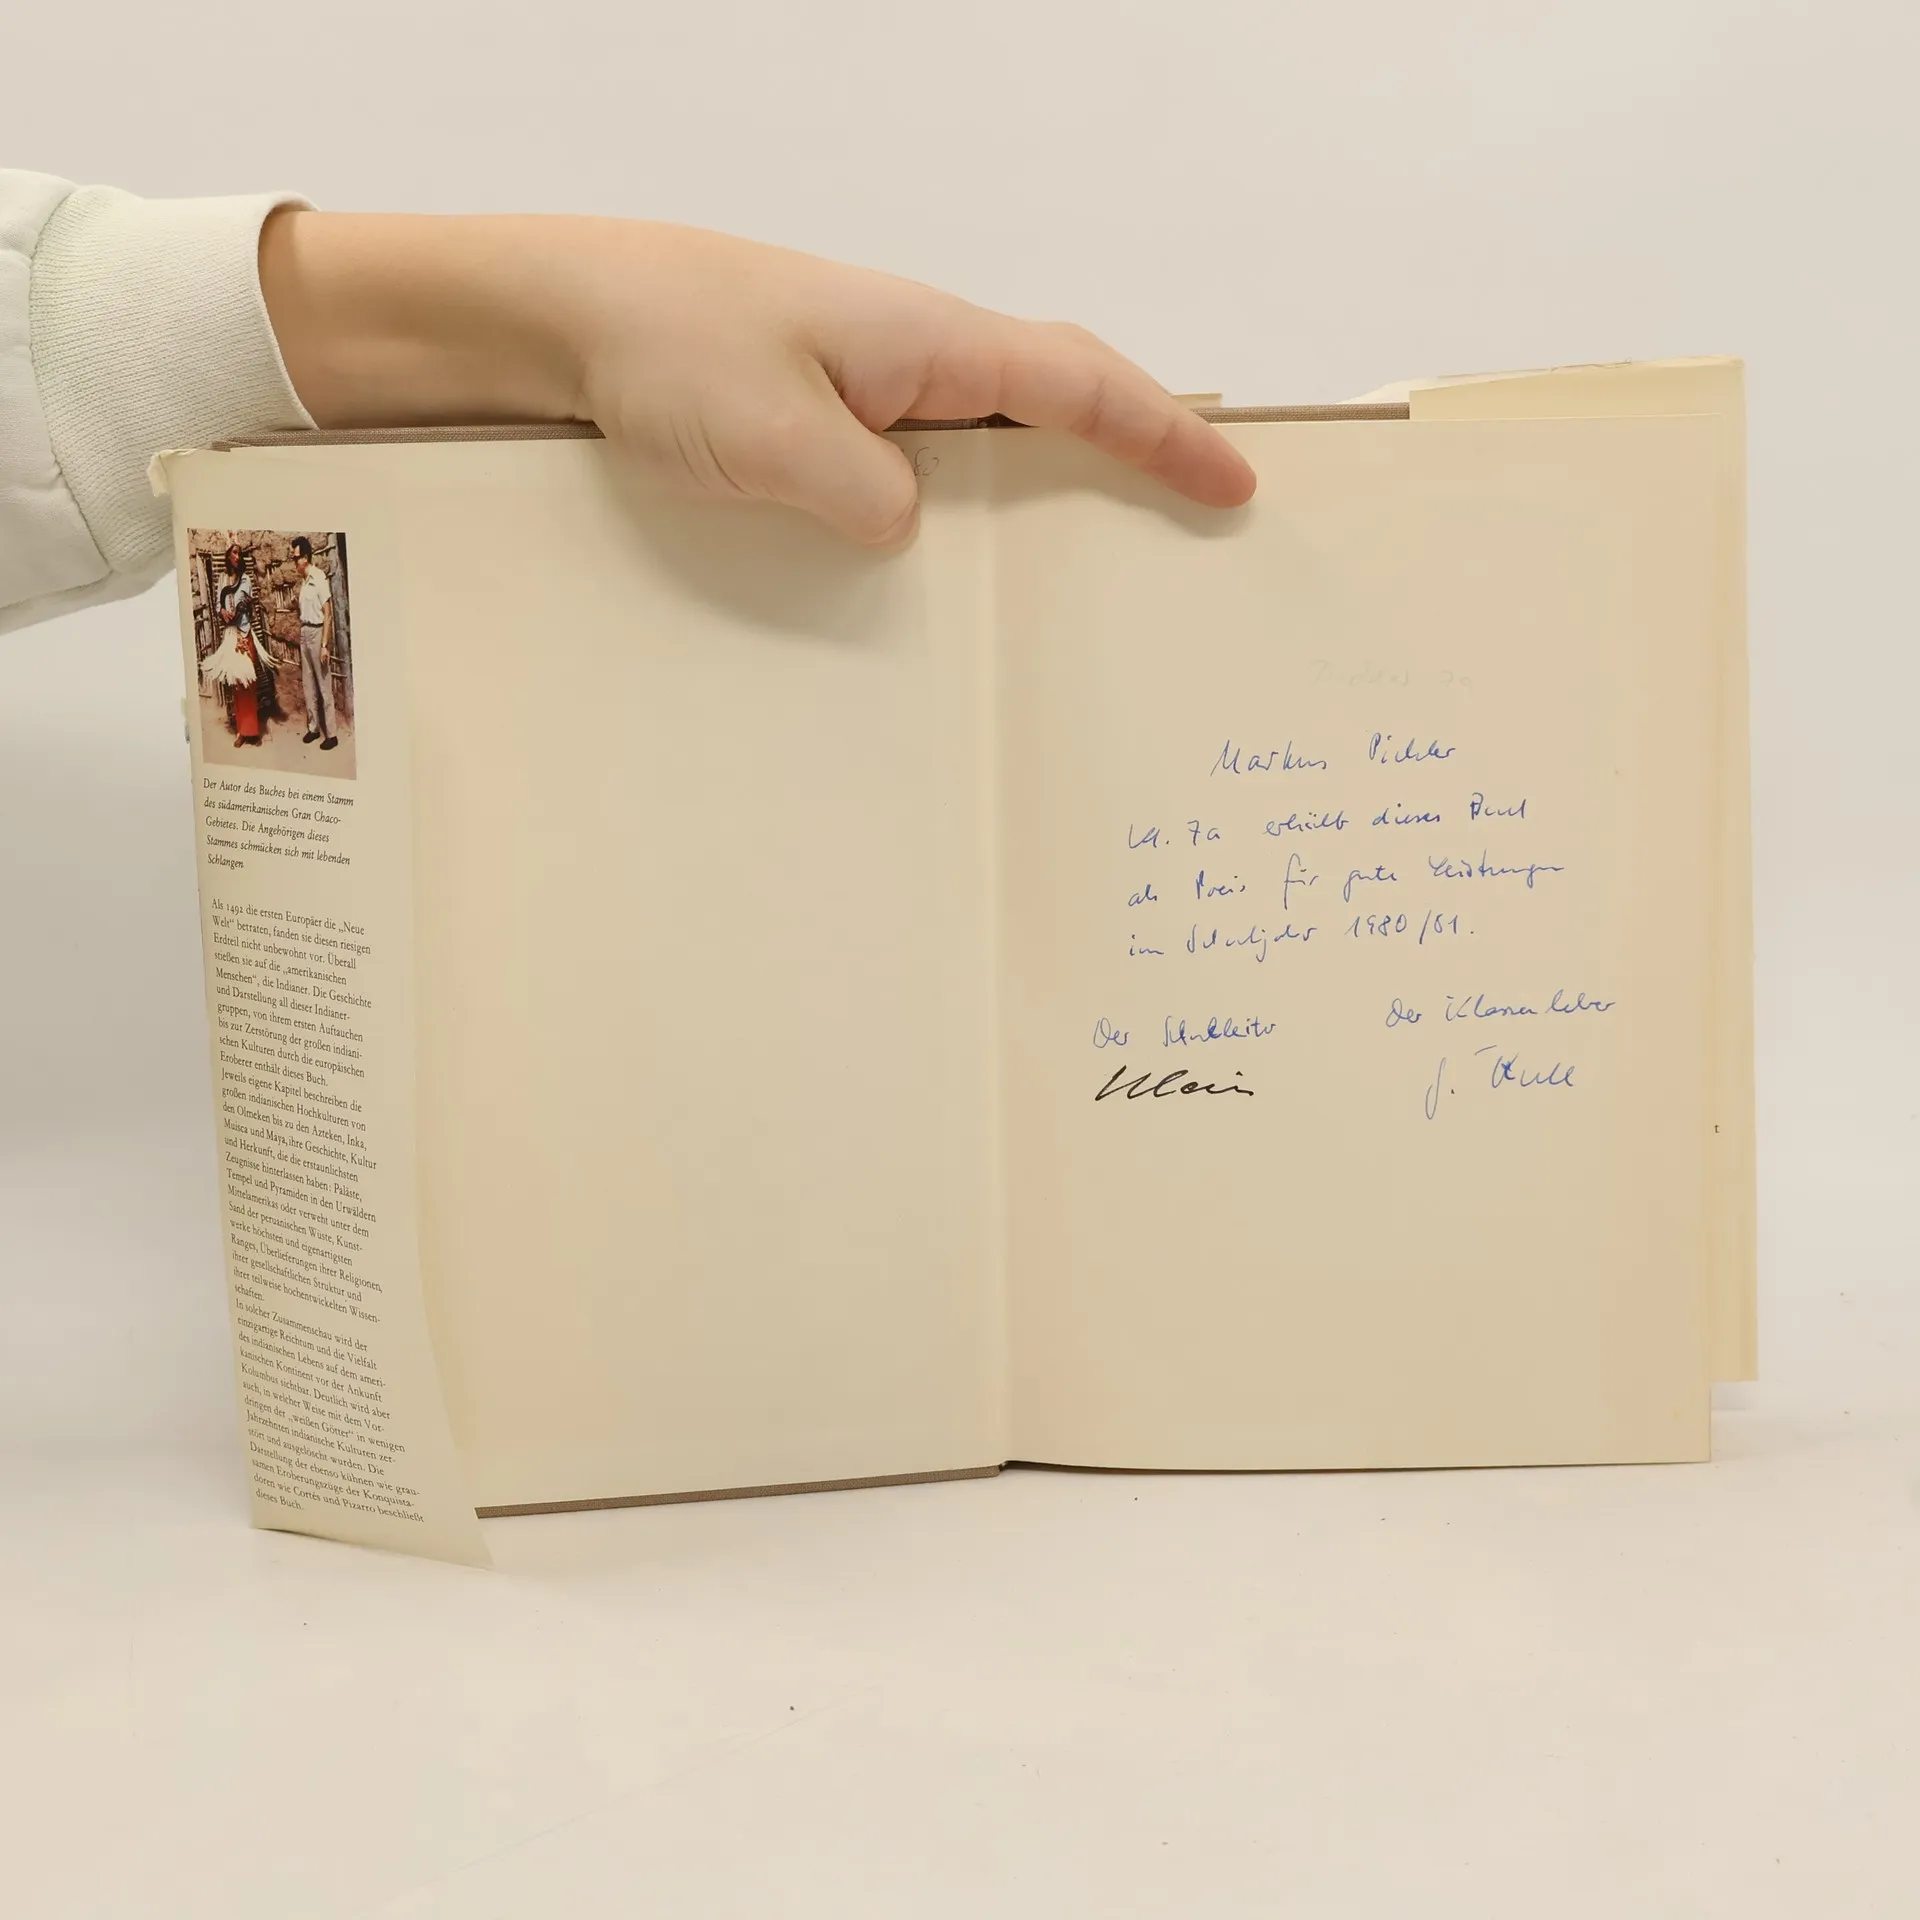 80
Der Autor des Buches bei einem Stamm
des südamerikanischen Gran Chaco-
Gebietes. Die Angehörigen dieses
Stammes schmücken sich mit lebenden
Schlangen
Als 1492 die ersten Europäer die „Neue
Welt“ betraten, fanden sie diesen riesigen
Erdteil nicht unbewohnt vor. Überall
stießen sie auf die „amerikanischen
Menschen“, die Indianer. Die Geschichte
und Darstellung all dieser Indianer-
gruppen, von ihrem ersten Auftauchen
bis zur Zerstörung der großen indiani-
schen Kulturen durch die europäischen
Eroberer enthält dieses Buch.
Jeweils eigene Kapitel beschreiben die
großen indianischen Hochkulturen von
den Olmeken bis zu den Azteken, Inka,
Muisca und Maya, ihre Geschichte, Kultur
und Herkunft, die die erstaunlichsten
Zeugnisse hinterlassen haben: Paläste,
Tempel und Pyramiden in den Urwäldern
Mittelamerikas oder verweht unter dem
Sand der peruanischen Wüste, Kunst-
werke höchsten und eigenartigsten
Ranges, Überlieferungen ihrer Religionen,
ihrer gesellschaftlichen Struktur und
ihrer teilweise hochentwickelten Wissen-
schaften.
In solcher Zusammenschau wird der
einzigartige Reichtum und die Vielfalt
des indianischen Lebens auf dem ameri-
kanischen Kontinent vor der Ankunft
Kolumbus sichtbar. Deutlich wird aber
auch, in welcher Weise mit dem Vor-
dringen der „weißen Götter“ in wenigen
Jahrzehnten indianische Kulturen zer-
stört und ausgelöscht wurden. Die
Darstellung der ebenso kühnen wie grau-
samen Eroberungszüge der Konquista-
doren wie Cortés und Pizarro beschließt
dieses Buch.
Markus Pichler
Kl. 7a erhält dieses Buch
als Preis für gute Leistungen
im Schuljahr 1980/81.
Der Schulleiter Der Klassenlehrer
Klein
t